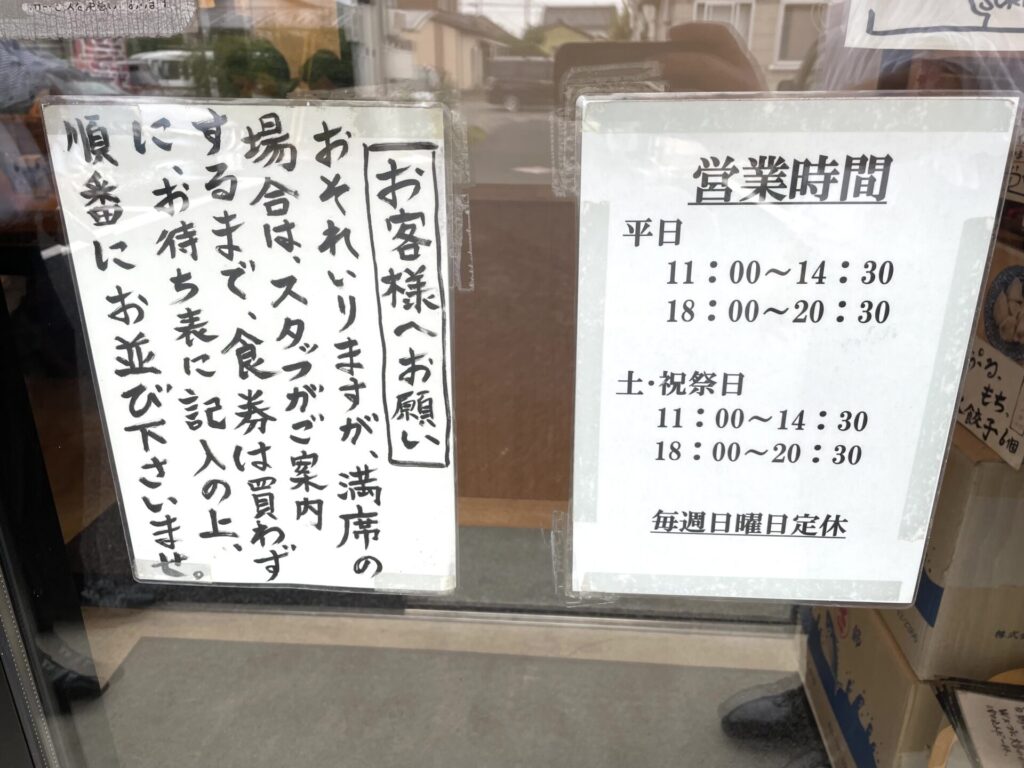 お客様へお願い
おそれいりますが、満席の
場合は、スタッフがご案内
するまで、食券は買わず
に、お待ち表に記入の上、
順番にお並び下さいませ。
営業時間
平日
11：00～14：30
18：00～20：30
土・祝祭日
11：00～14：30
18：00～20：30
毎週日曜日定休
もち、
餃子6個
株式